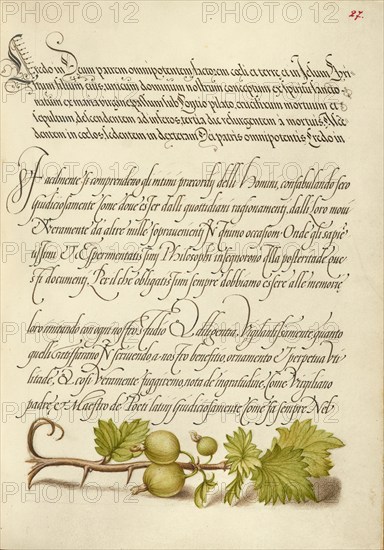 27.
Credo in Deum patrem omnipotentem, factorem coeli et terre, et in Jesum Chri
stum filium eius, unicum dominum nostrum, conceptum ex spiritu sancto
natum ex maria virgine, passum sub Pontio pilato, crucifixum mortuum et
sepultum, descendentem ad inferos, tertia die resurgentem a mortuis, Asce
dentem in celos, sedentem in dexteram Dei patris omnipotentis. Credo in
Facilmente si comprendeno gli intimi precordij delli Homini, confabulando seco
giudiciosamente, come dove esser dalli quottidiani ragionamenti, dalli loro movi
Et veramente da altre mille sopravenienti in quino occasion. Onde gli sapie
tissimi Et Esperimentatissimi Philosophi insegnorono Alla posteritade que
sti documenti. Per il che obligatissimi sempre dobbiamo essere alle memorie
loro imitando con ogni nostro studio Et diligentia. Vigilantissimamente quanto
quelli lassaranno scrivendo a nostro benefitio, ornamento Et perpetua uti
litade, Et cosi veramente fuggiremo nota de ingratitudine. Come Virgiliano
padre Et Maestro de Poeti latini giudiciosamente Come fa sempre Nel
PHOTO12